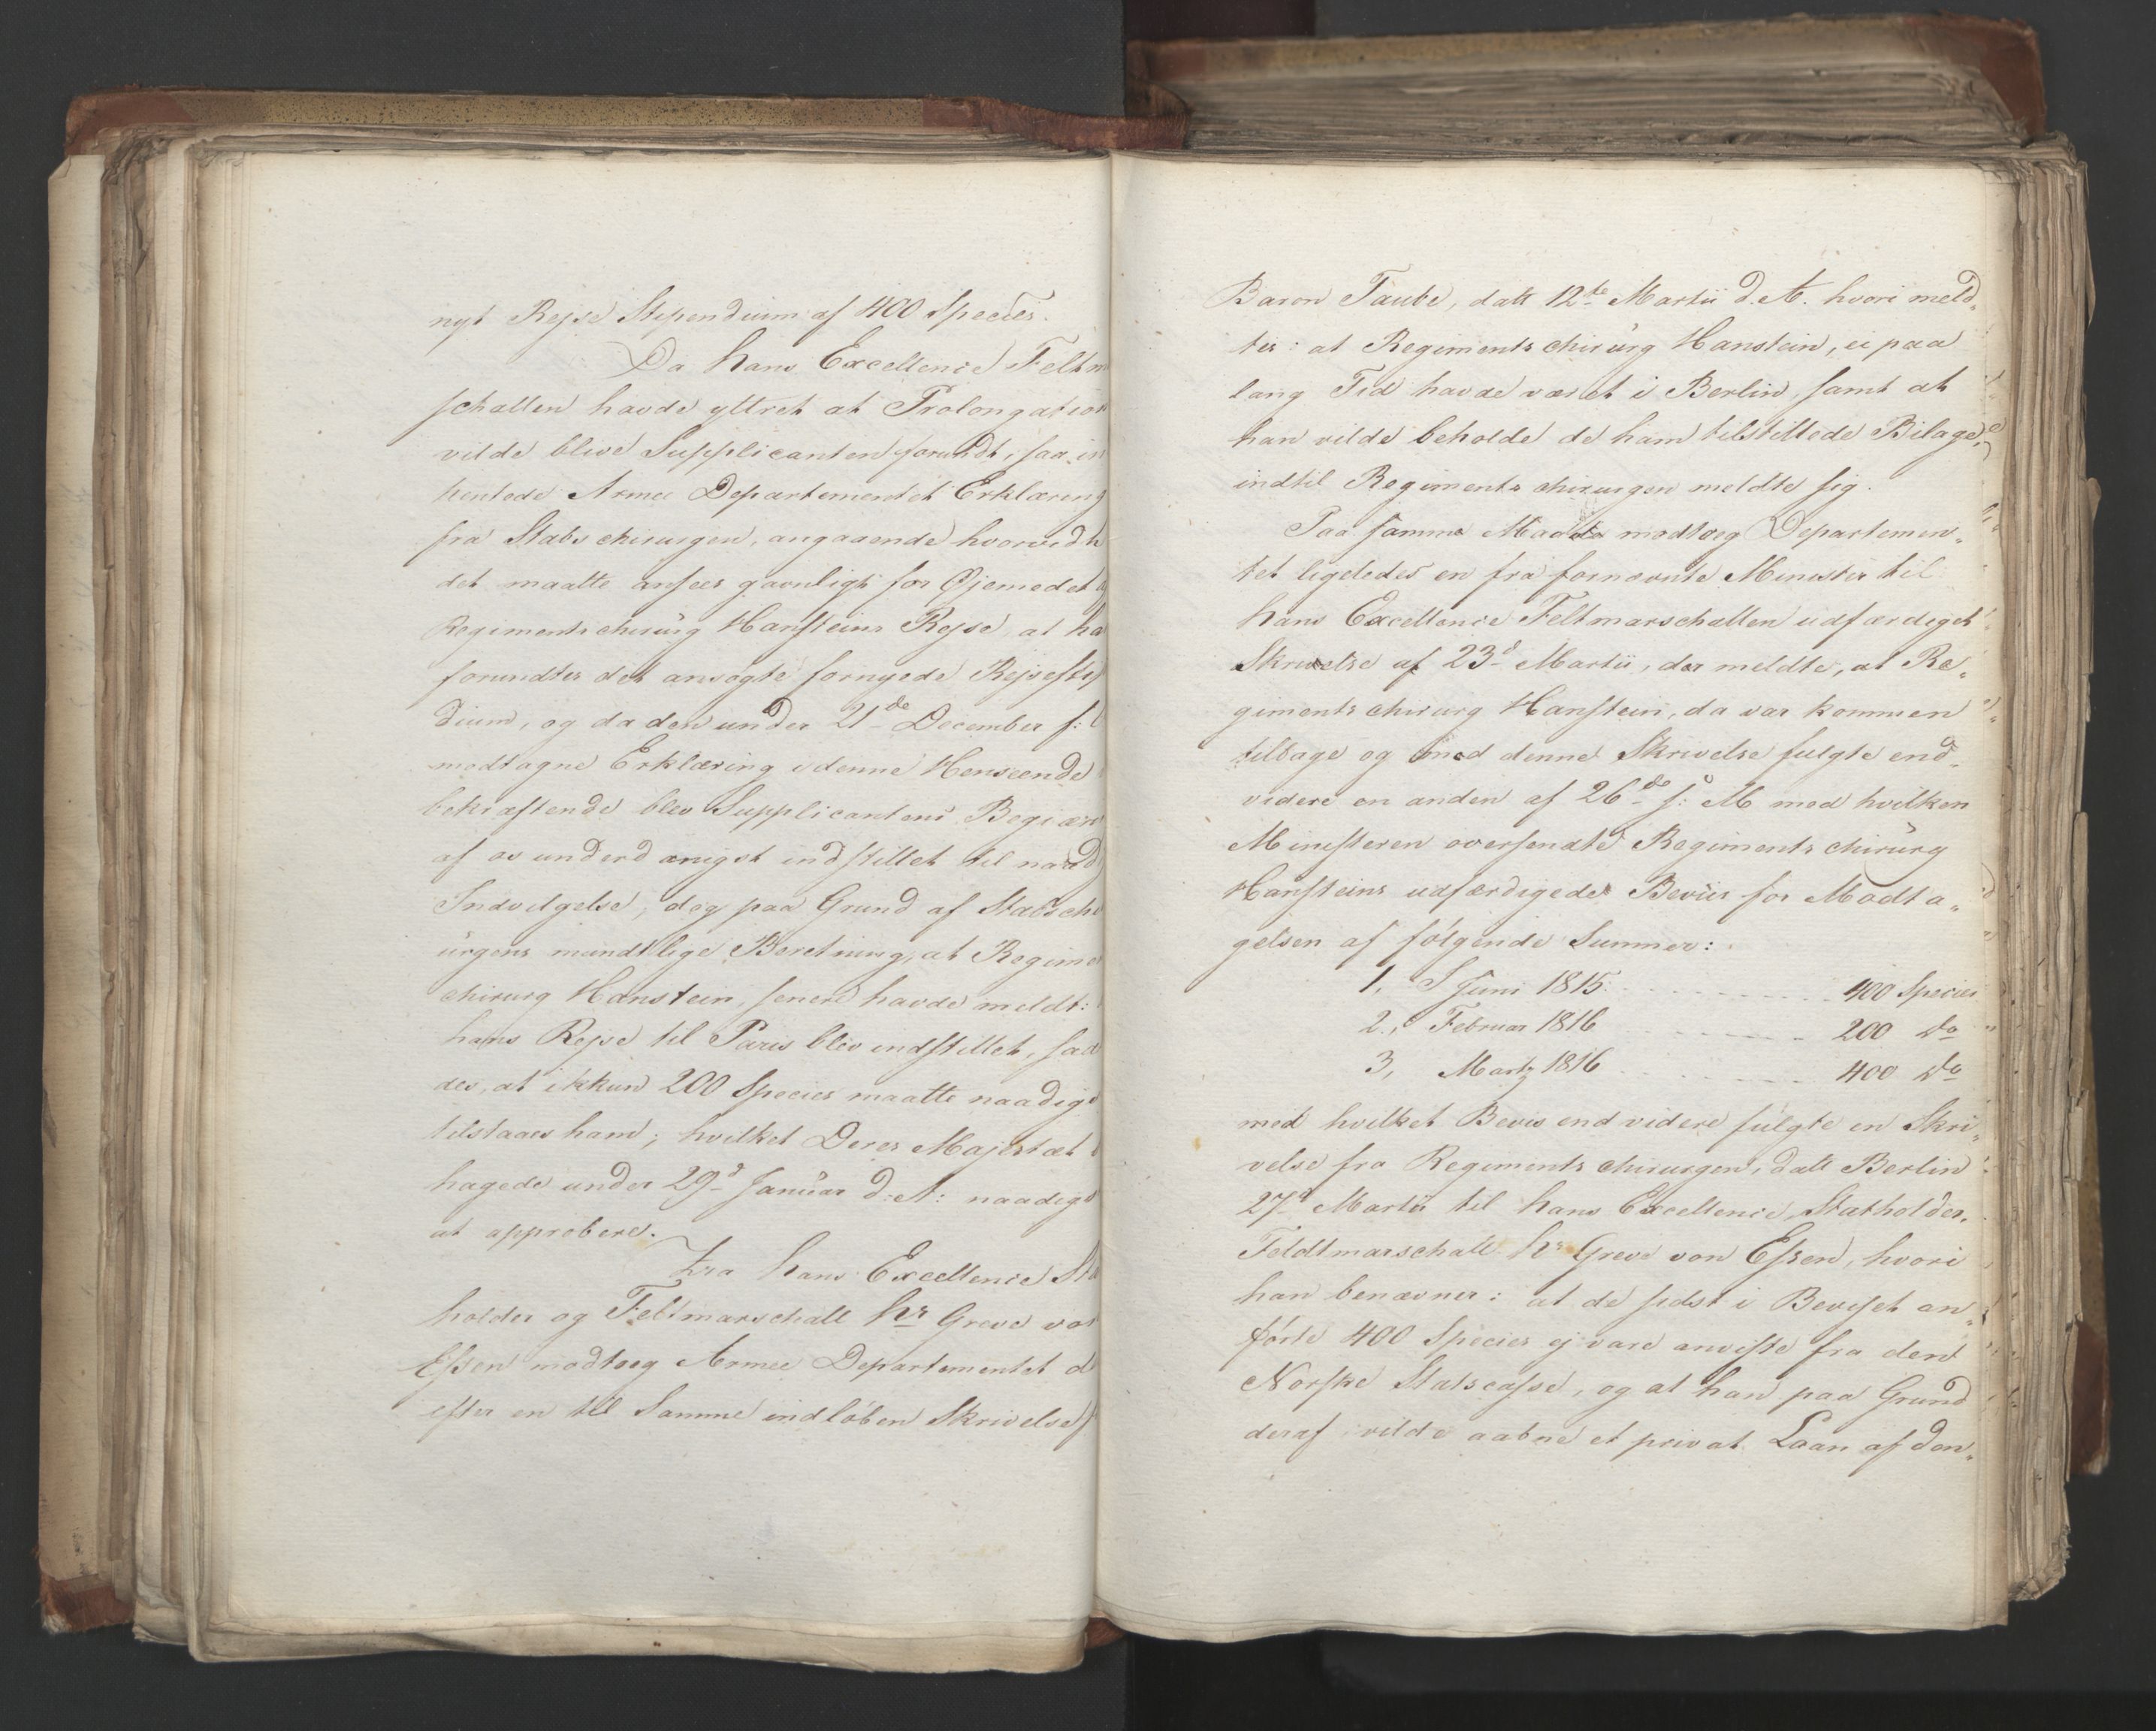 nyt Rejse Stipendium af 400 Species.
Da Hans Excellence Feltm
schallen havde yttret at Prolongation
vilde blive Supplicanten forundt, saa in
hentede Armee Departementet Erklæring
fra Stabschirurgen, angaaende hvorvidt
det maatte ansees gavnligt for Øjemedet
Regimentschirurg Hansteins Rejse, at ha
forundtes det ansøgte fornyede Rejsesti
dium, og da den under 21de December f:
modtagne Erklæring i denne Henseende
bekræftende blev Supplicantens Begiær
af os underdanigst indstillet til naad
Indvilgelse, dog paa Grund af Stabschi
urgens mundtlige Beretning, at Regime
chirurg Hanstein, senere havde meldt:
hans Rejse til Paris blev indstillet, saa
des, at ikkun 200 Species maatte naadigs
tilstaaes ham; hvilket Deres Majestæt b
hagede under 29d Januar d: A: naadigs
at approbere.
Fra Hans Excellence Sta
holder og Feltmarschall Hr Greve von
Essen modtoeg Armee Departementet d
efter en til Samme indløben Skrivelse f
Baron Taube, datt 12te Martii d. A. hvori meld„
tes: at Regimentschirurg Hanstein, ei paa
lang Tid havde været i Berlin, samt at
han vilde beholde de ham tilstillede Bilage,
indtil Regimentschirurgen meldte sig.
Paa samme Maade modtoeg Departemen„
tet ligeledes en fra fornævnte Minister til
Hans Excellence Feltmarschallen udfærdiget
Skrivelse af 23d Martii, der meldte, at Re„
gimentschirurg Hanstein, da var kommen
tilbage og med denne Skrivelse fulgte end„
videre en anden af 26de s: M med hvilken
Ministeren oversendte Regimentschirurg
Hansteins udfærdigede Beviis for Modta„
gelsen af følgende Summer:
1, I Juni 1815 400 Species
2, Februar 1816 200 do
3, Marts 1816 400 do
med hvilket Bevis end videre fulgte en Skri„
velse fra Regimentschirurgen, datt Berlin
27d Martii til Hans Excellence, Statholder,
Feldtmarschall Hr Greve von Essen, hvori
han benævner: at de sidst i Beviset an„
førte 400 Species ej vare anviste fra den
Norske Statscasse, og at han paa Grund
deraf vilde aabne et privat Laan af den„